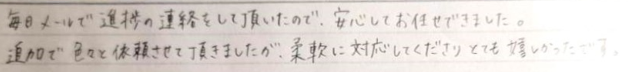 毎日メールで進捗の連絡をして頂いたので、安心してお任せできました。
追加で色々と依頼させて頂きましたが、柔軟に対応してくださりとても嬉しかったです。